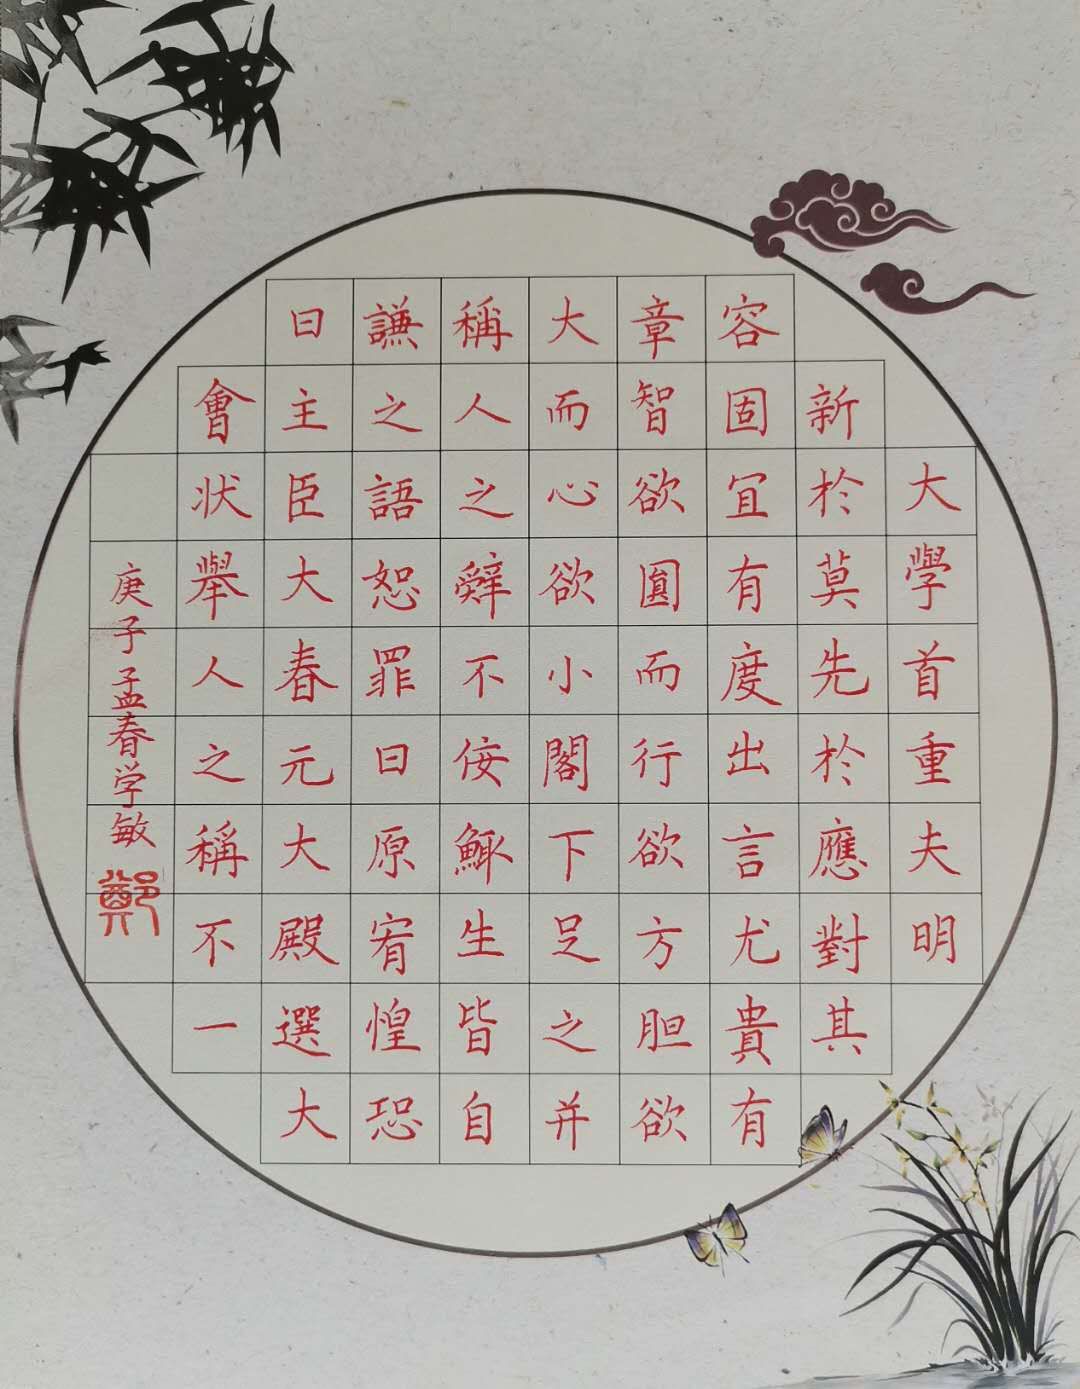 大學首重夫明
新於莫先於應對其
容固宜有度出言尤貴有
章智欲圓而行欲方胆欲
大而心欲小閣下足之并
稱人之辭不佞鯫生皆自
謙之語恕罪曰原宥惶恐
曰主臣大春元大殿選大
會状舉人之稱不一
庚子孟春学敏
鄭